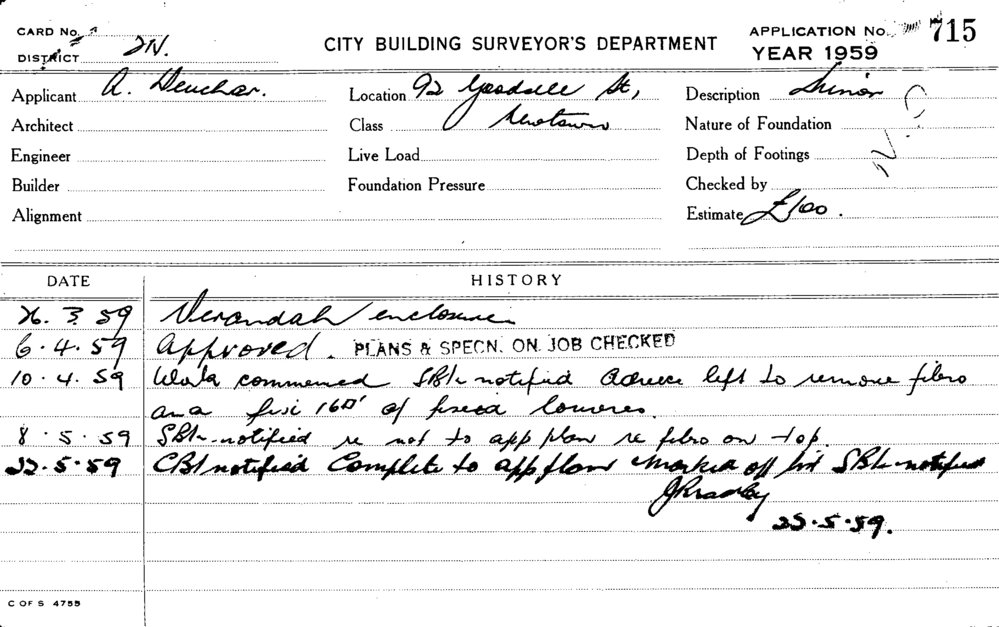 CARD No.
DISTRICT 2N.
CITY BUILDING SURVEYOR'S DEPARTMENT
APPLICATION No. 715
YEAR 1959
Applicant A. Deuchar.
Location 92 Goodsell St,
Description Minor
Architect
Class Newtown
Nature of Foundation
Engineer
Live Load
Depth of Footings
N.O
Builder
Foundation Pressure
Checked by
Alignment
Estimate £100.
DATE
HISTORY
26. 3. 59 Verandah enclosure
6.4.59 Approved. PLANS & SPECN. ON JOB CHECKED
10.4.59 Work commenced notified Advice left to remove fibro
and fix 16 of fixed louvres.
8.5.59 notified re not to app plan re fibro on top.
22.5.59 notified Complete to app plan marked off list notified
25.5.59.
C OF S 4755